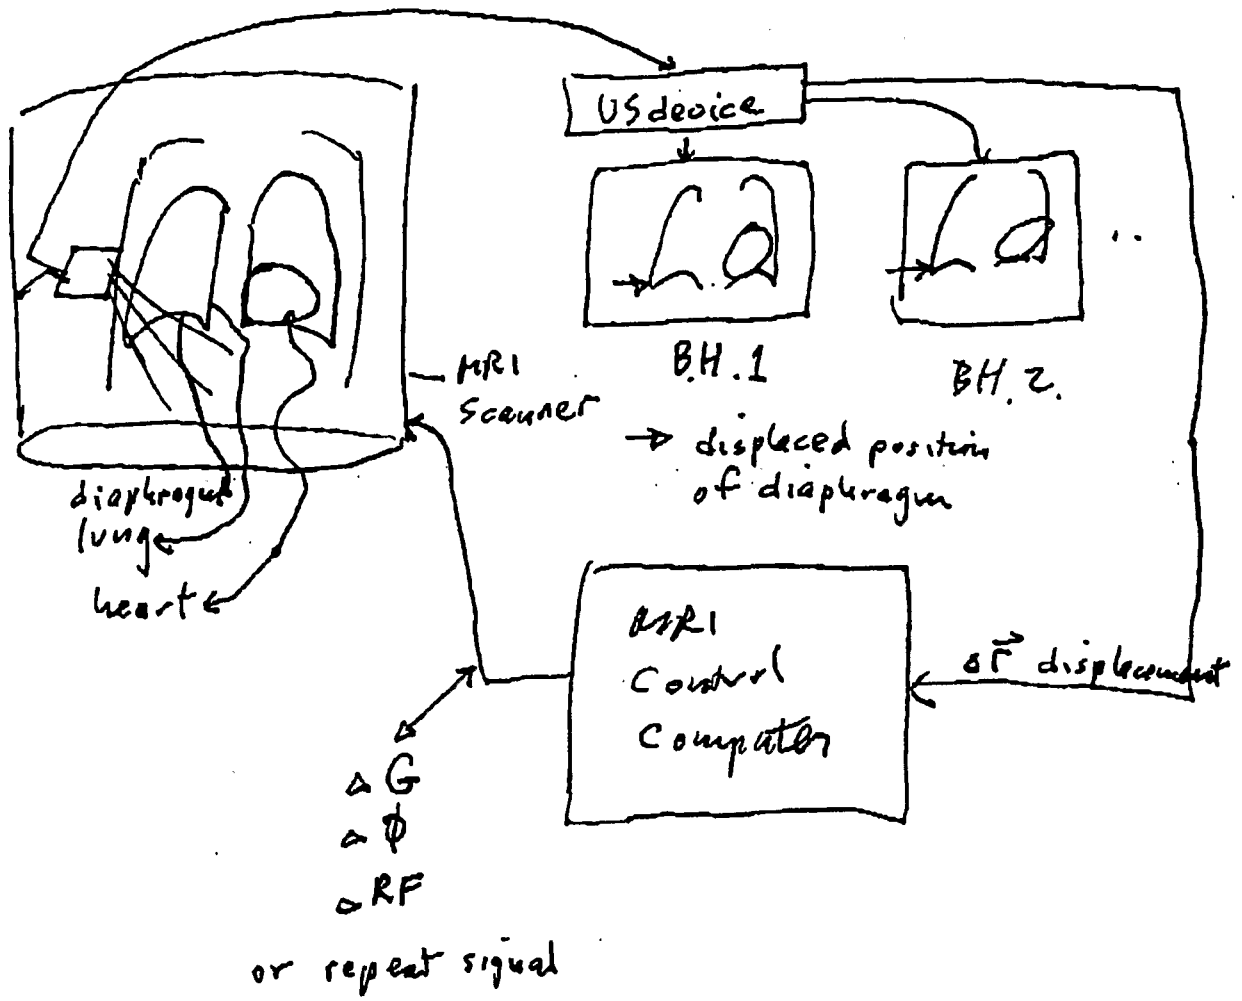 US device
B.H. 1
B.H. 2.
MRI
scanner
→ displaced position
of diaphragm
diaphragm
lung
heart
MRI
Control
Computer
Δr⃗ displacement
Δ G
Δ ϕ
Δ RF
or repeat signal